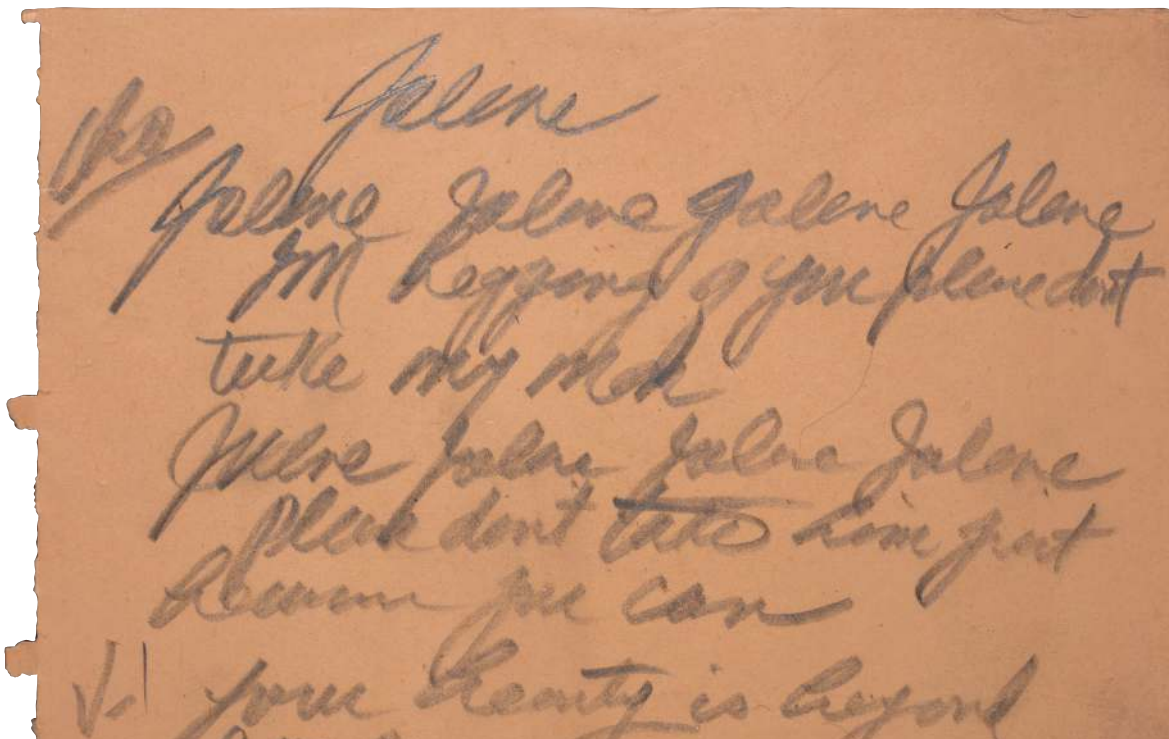 Jolene
cho
Jolene Jolene Jolene Jolene
I'm begging of you please dont
take my man
Jolene Jolene Jolene Jolene
please dont take him just
because you can
V.1 your beauty is beyond